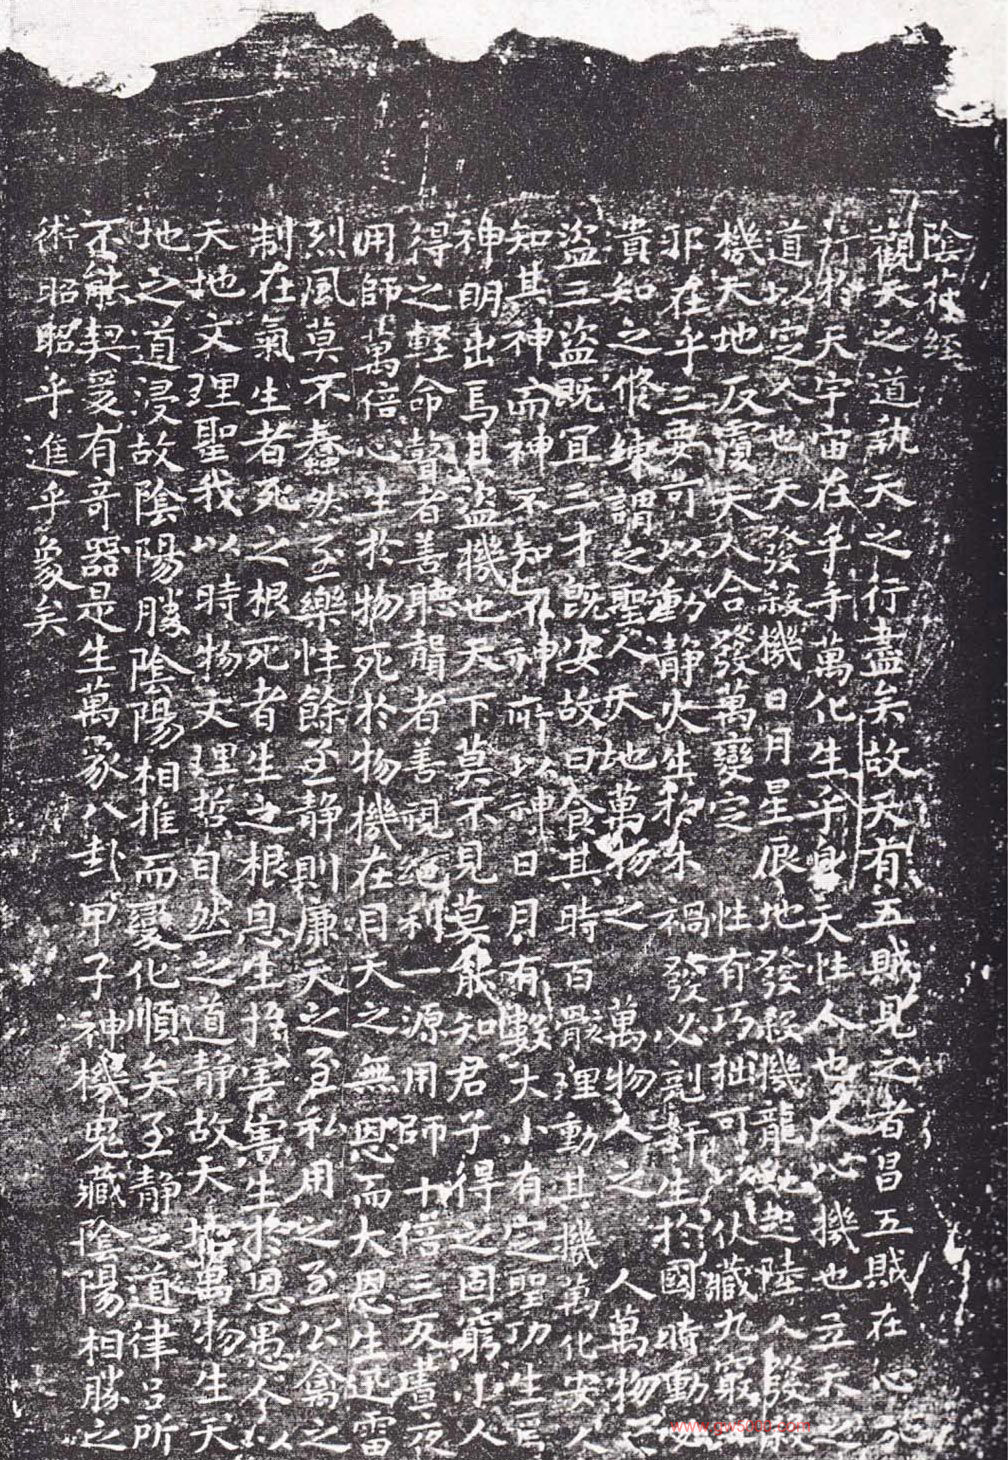 陰符経
觀天之道執天之行盡矣故天有五賊見之者昌五賊在心
行於天宇宙在乎手萬化生乎身天性人也人心機也立天之
道以定人也天發殺機日月星辰地發殺機龍虵起陸人發殺
機天地反覆天人合發萬變定性有巧拙可以伏藏九竅
邪在乎三要可以動靜火生於木禍發必剋姧生於國時動必
潰知之修練謂之聖人天地萬物之萬物人之人萬物之
盜三盜既冝三才既安故曰食其時百骸理動其機萬化安人
知其神而神不知不神所以神日月有數大小有定聖功生焉
神明出焉其盜機也天下莫不見莫能知君子得之固窮小人
得之輕命瞽者善聽聾者善視絕利一源用師十倍三反晝夜
用師萬倍心生於物死於物機在目天之無恩而大恩生迅雷
烈風莫不蠢然至樂性餘至静則廉天之至私用之至公禽之
制在氣生者死之根死者生之根恩生於害害生於恩愚人以
天地文理聖我以時物文理哲自然之道静故天地萬物生天
地之道浸故陰陽勝陰陽相推而變化順矣至静之道律吕所
不能契爰有奇器是生萬象八卦甲子神機鬼藏陰陽相勝之
術昭昭乎進乎象矣
www.gw5000.com